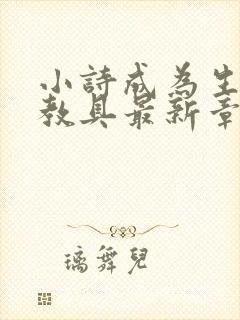 小詩成為生
教具最新章
璃舞兒